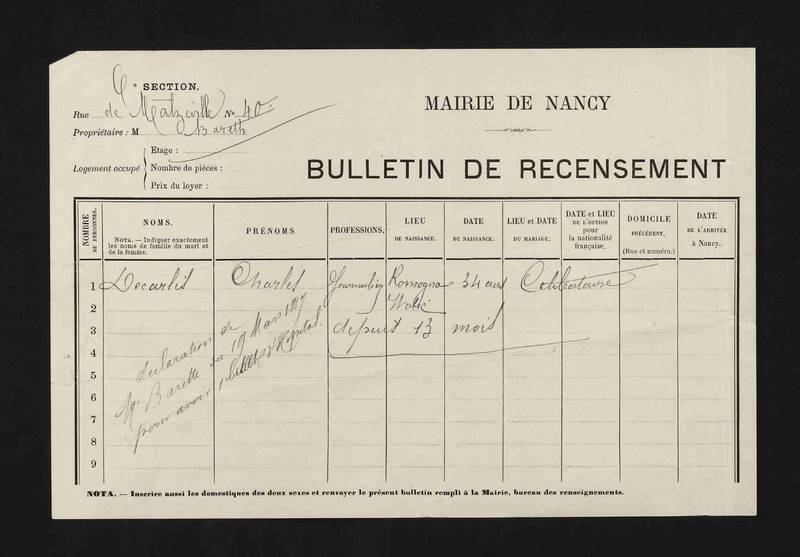 6e SECTION.
Rue de Malzéville No 40.
Propriétaire : M Bareth
Logement occupé
Etage :
Nombre de pièces :
Prix du loyer :
MAIRIE DE NANCY
BULLETIN DE RECENSEMENT
NOMBRE DE PERSONNES.
NOMS.
NOTA. — Indiquer exactement les noms de famille du mari et de la femme.
PRÉNOMS
PROFESSIONS.
LIEU DE NAISSANCE.
DATE DE NAISSANCE.
LIEU et DATE DU MARIAGE.
DATE et LIEU DE L'OPTION pour la nationalité française.
DOMICILE PRÉCÉDENT. (Rue et numéro.)
DATE DE L'ARRIVÉE à Nancy.
1 Decarlis Charles Journalier Romogna 34 ans Célibataire
2
3 depuis 13 mois
4
5
6
7
8
9
déclaration de
Mr Barette du 19 Mars
pour avoir 1 billet d'Hopital.
NOTA. — Inscrire aussi les domestiques des deux sexes et renvoyer le présent bulletin rempli à la Mairie, bureau des renseignements.